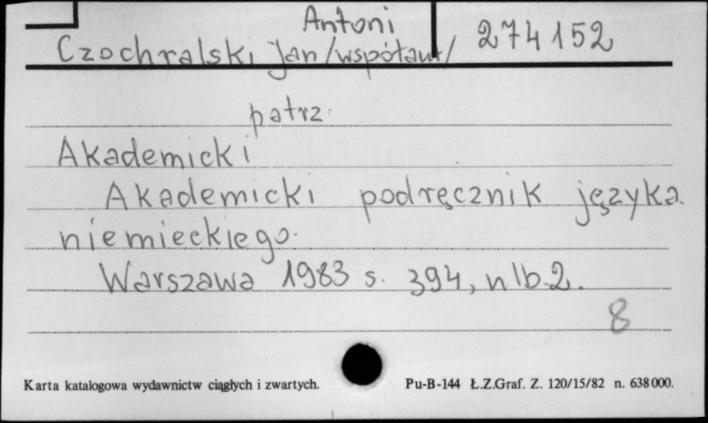 Antoni
Czochralski Jan /współaut/ 274152
patrz.
Akademicki
Akademicki podręcznik języka
niemieckiego.
Warszawa 1983 s. 394, nlb.2.
8
Karta katalogowa wydawnictw ciągłych i zwartych. Pu-B-144 Ł.Z.Graf. Z. 120/15/82 n. 638000.